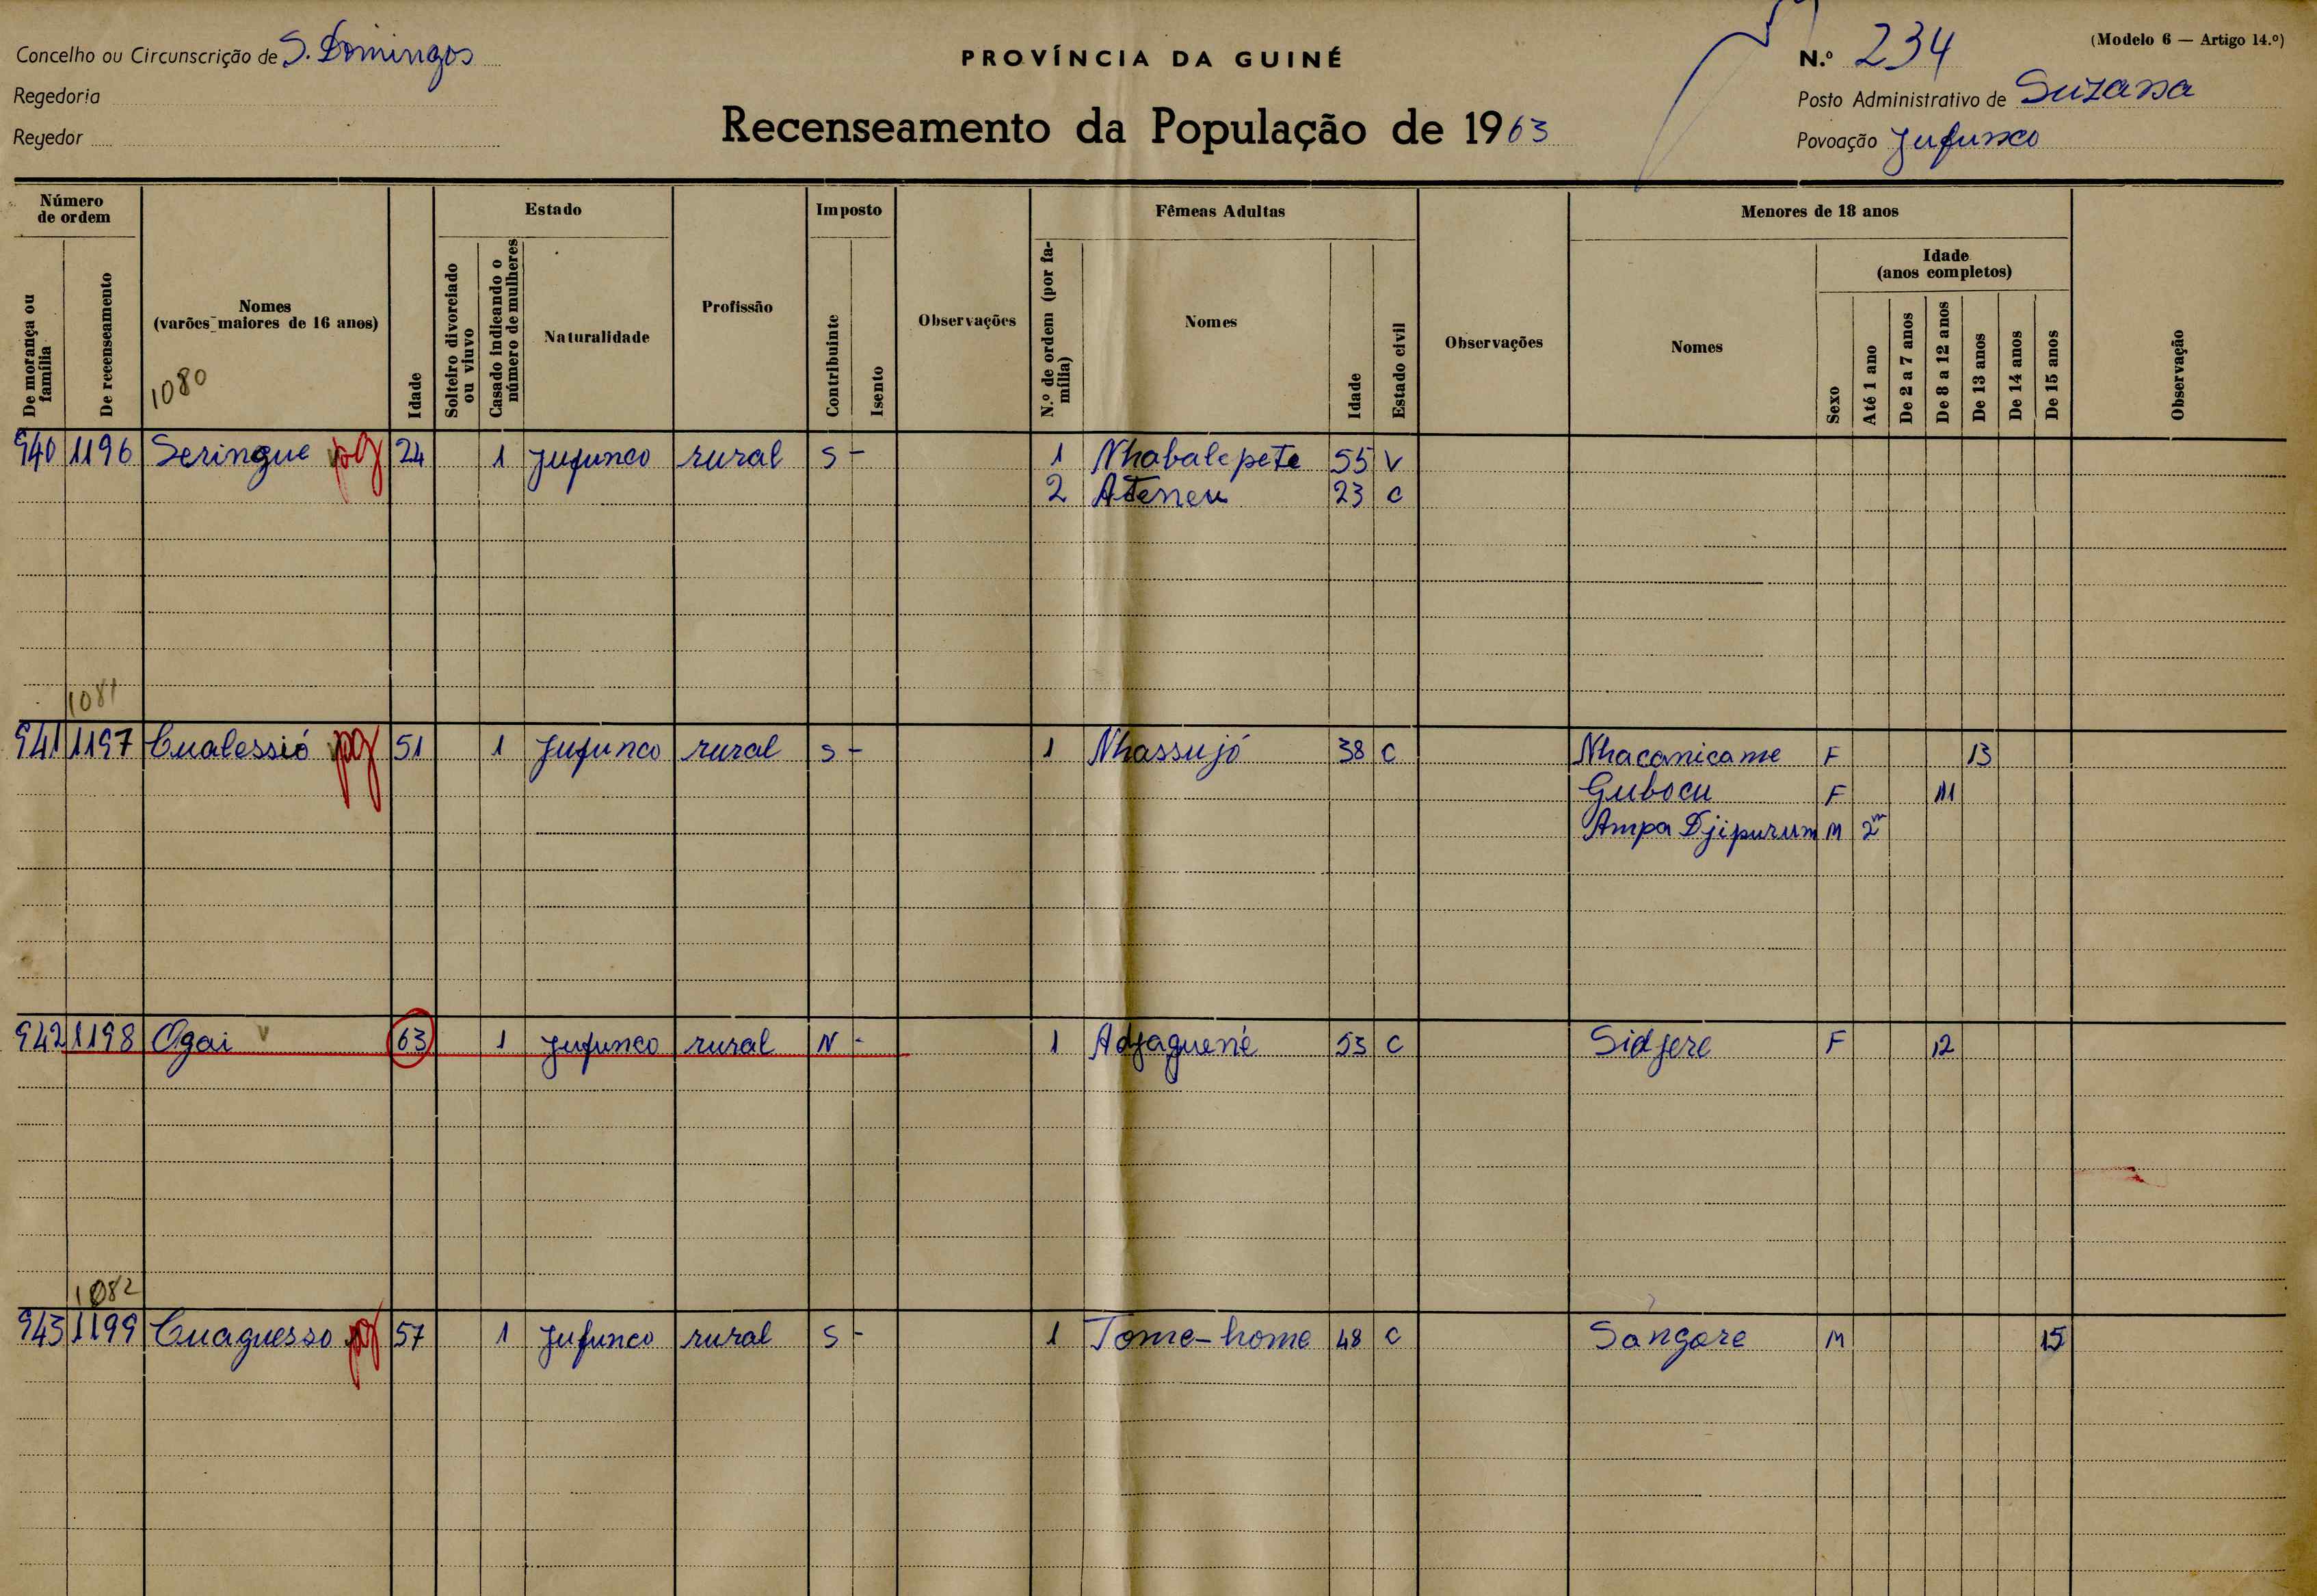 Concelho ou Circunscrição de S. Domingos
Regedoria
Regedor
PROVÍNCIA DA GUINÉ
Recenseamento da População de 1963
(Modelo 6 — Artigo 14.º)
N.º 234
Posto Administrativo de Suzana
Povoação Jufunco
Número de ordem
De morança ou família
De recenseamento
Nomes
(varões maiores de 16 anos)
1080
Idade
Estado
Solteiro divorciado ou viuvo
Casado indicando o número de mulheres
Naturalidade
Profissão
Imposto
Contribuinte
Isento
Observações
Fêmeas Adultas
N.º de ordem (por família)
Nomes
Idade
Estado civil
Observações
Menores de 18 anos
Nomes
Sexo
Idade
(anos completos)
Até 1 ano
De 2 a 7 anos
De 8 a 12 anos
De 13 anos
De 14 anos
De 15 anos
Observação
940 1196 Seringue pg 24 1 Jufunco rural S - 1 Nhabalepete 55 V
2 Ateneu 23 C
1081
941 1197 Cualessió pg 51 1 Jufunco rural S - 1 Nhassujó 38 C Nhacanicame F 13
Gubocu F 11
Ampa Djipurum M 2m
942 1198 Ogai V 63 1 Jufunco rural N - 1 Adjaguené 53 C Sidjere F 12
1082
943 1199 Cuaguesso pg 57 1 Jufunco rural S - 1 Tome-home 48 C Sangare M 15